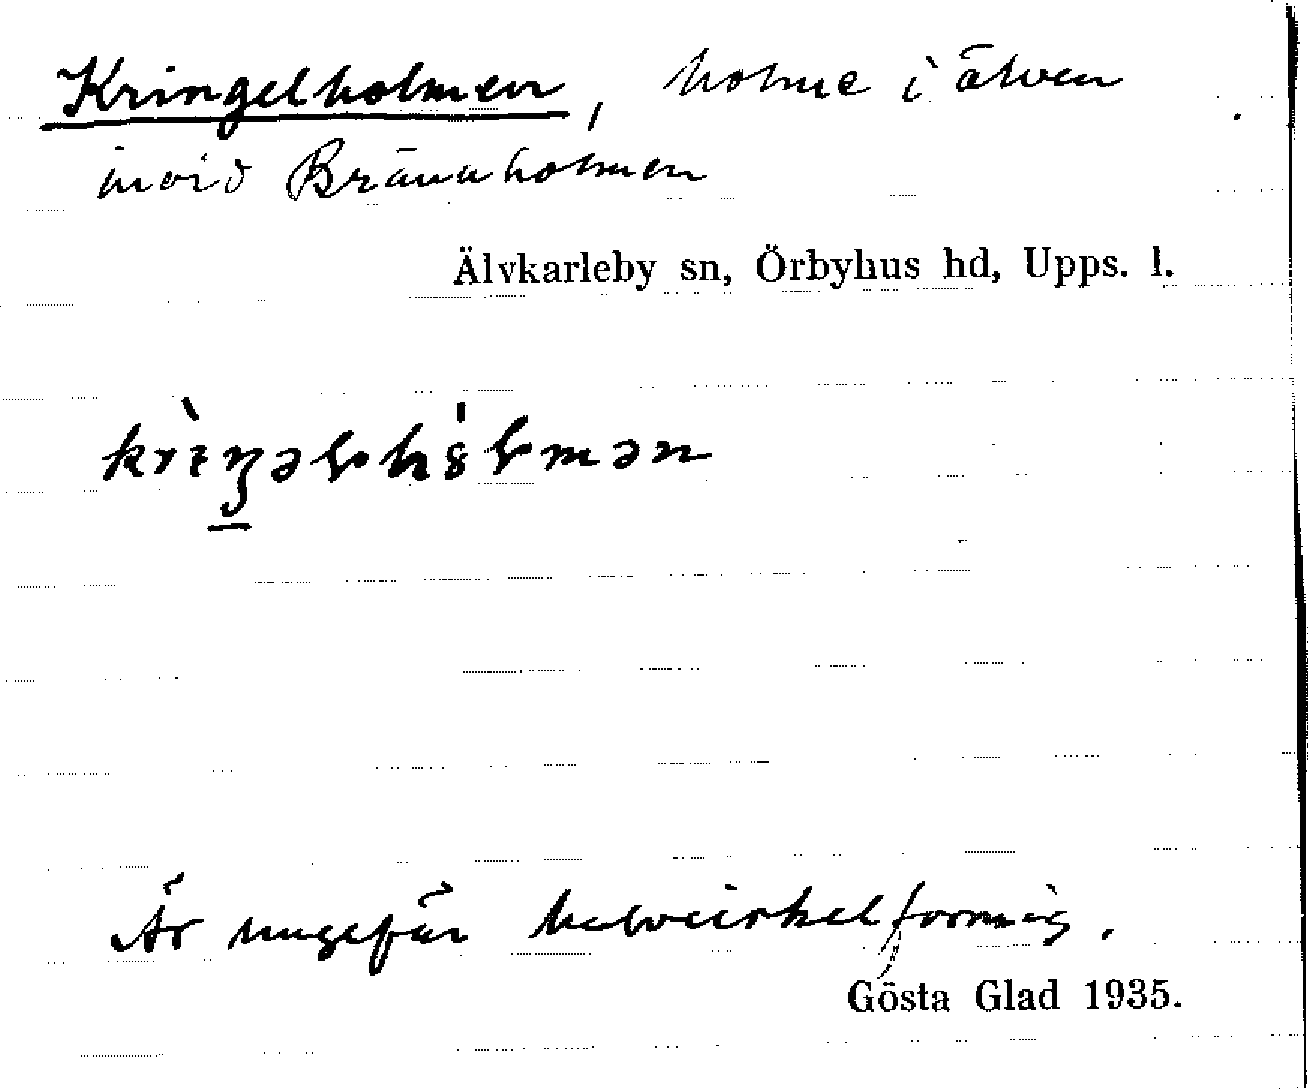 Kringelholmen, holme i älven
invid Brännholmen
Älvkarleby sn, Örbyhus hd, Upps. l.
Är ungefär halvcirkelformig.
Gösta Glad 1935.